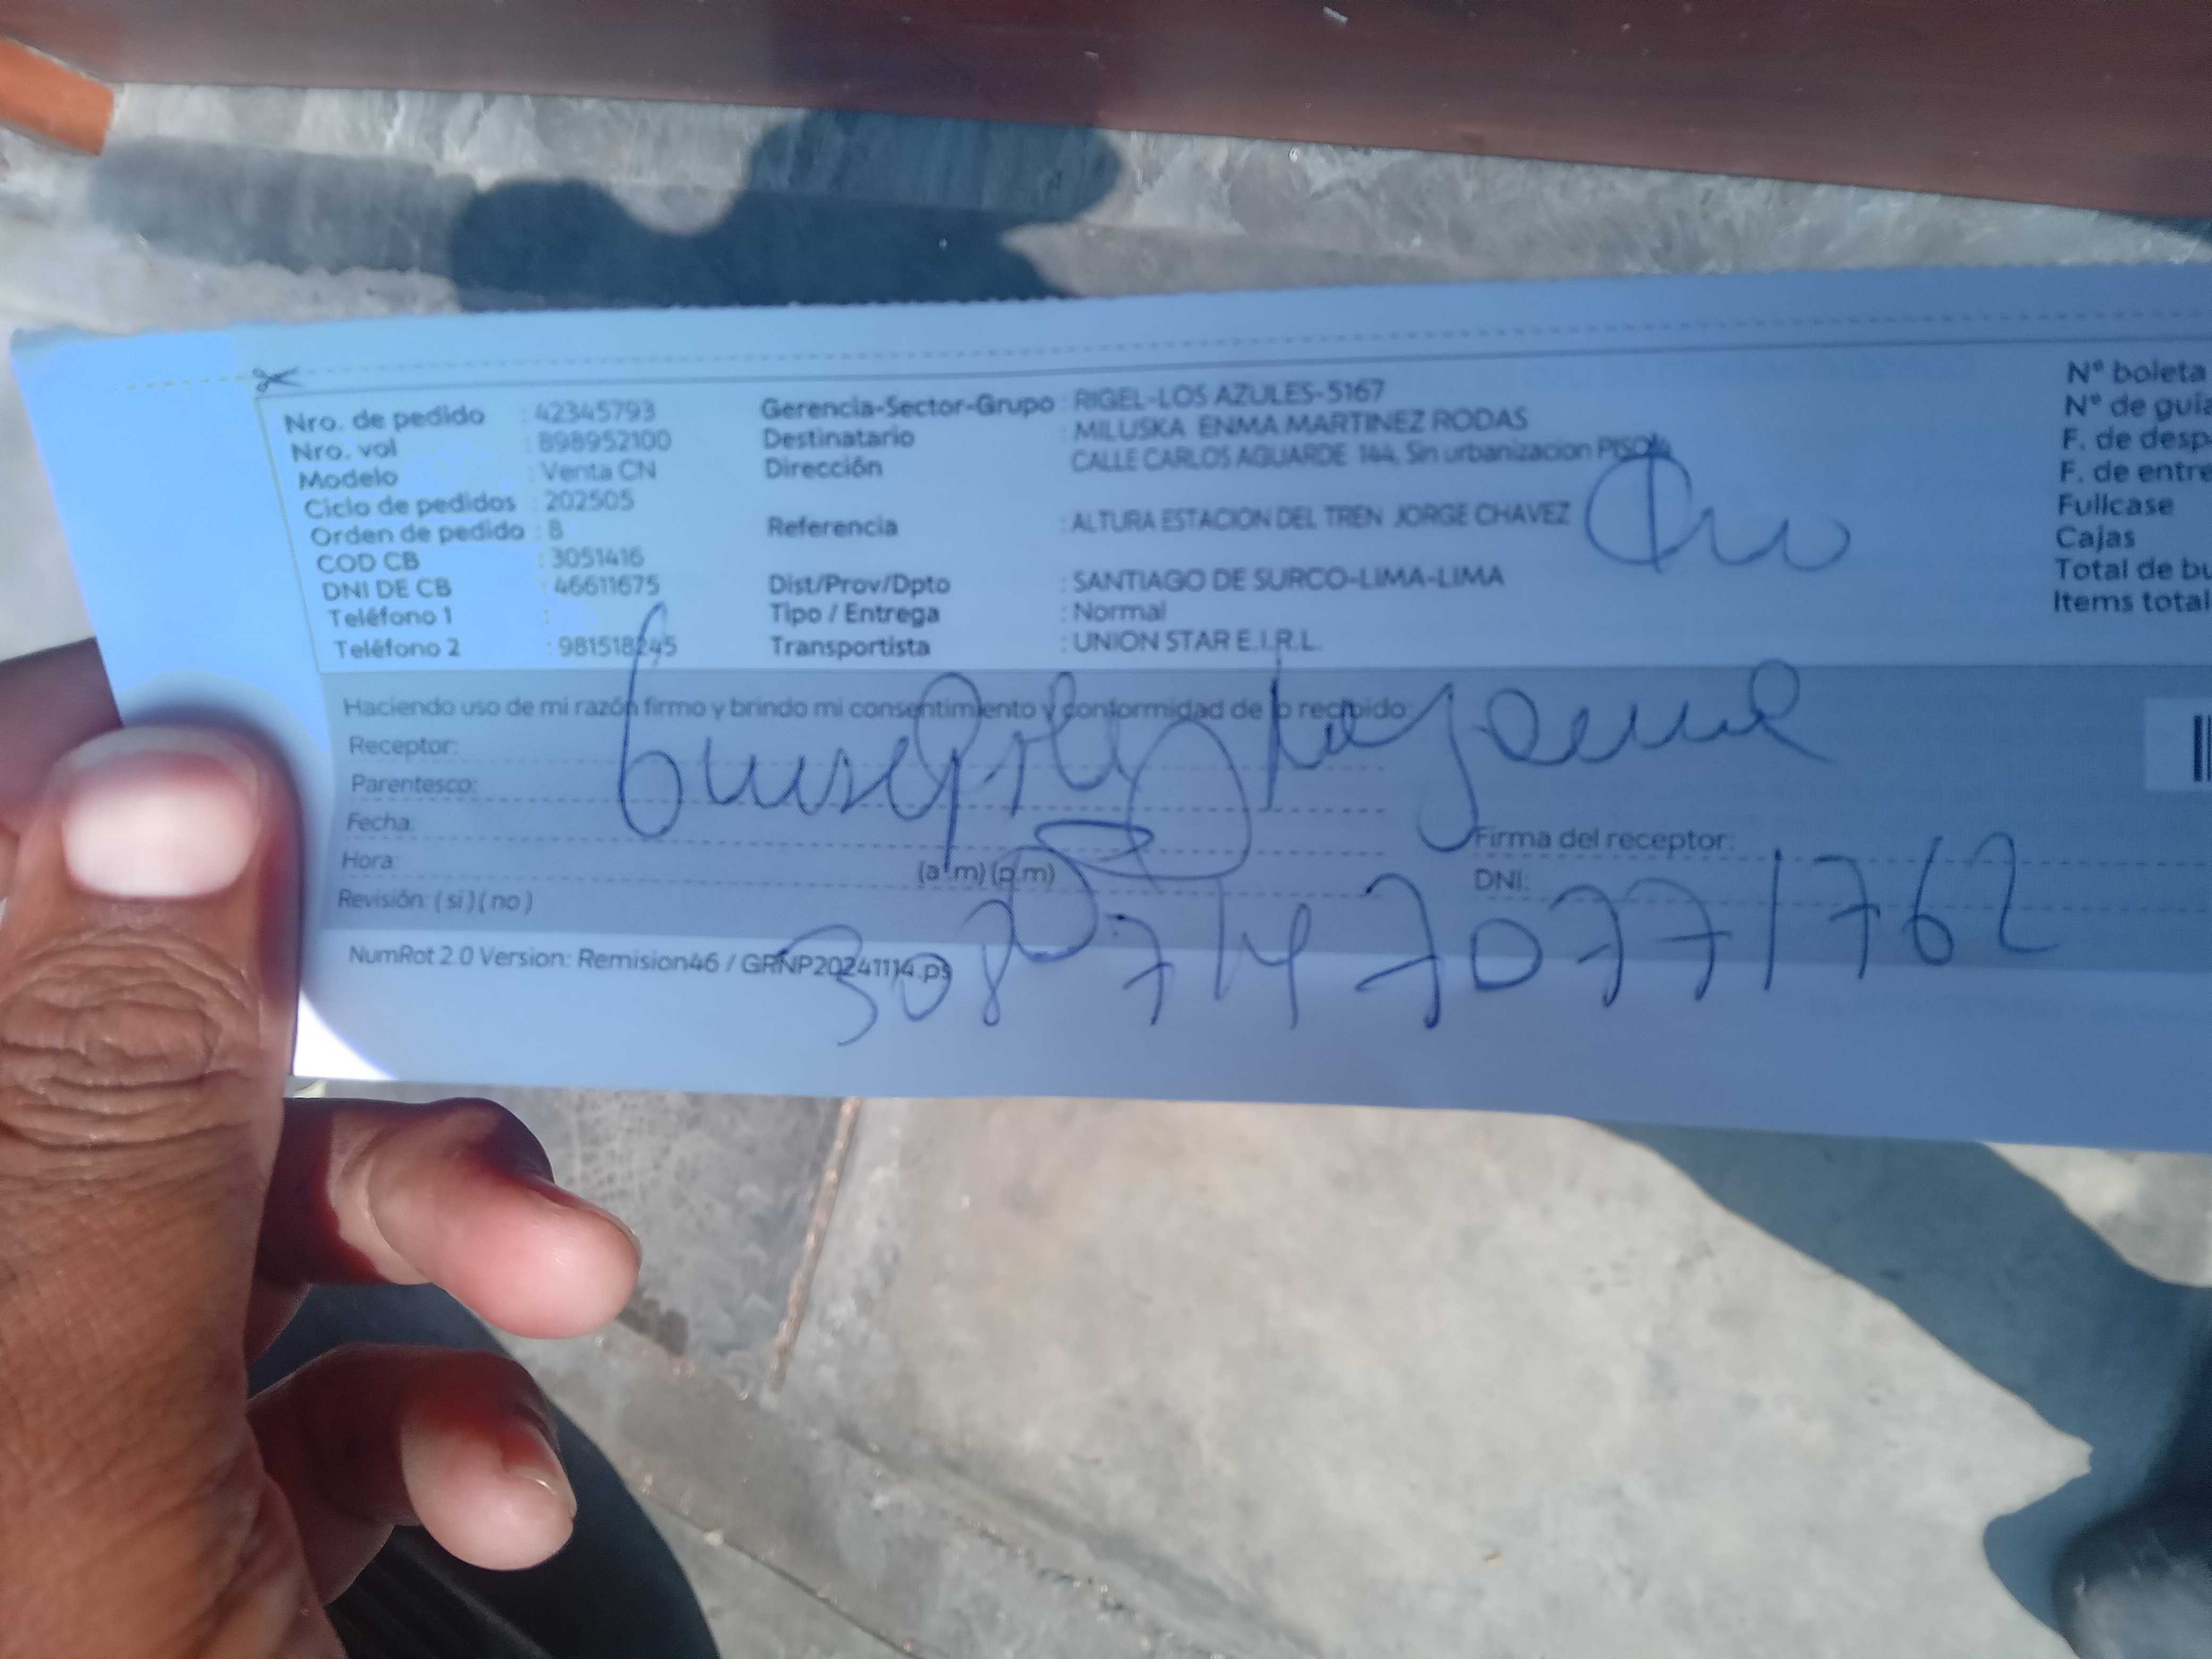 Nro. de pedido : 42345793
Nro. vol : 898952100
Modelo : Venta CN
Ciclo de pedidos : 202505
Orden de pedido : 8
COD CB : 3051416
DNI DE CB : 46611675
Teléfono 1 :
Teléfono 2 : 981518245
Gerencia-Sector-Grupo : RIGEL-LOS AZULES-5167
Destinatario : MILUSKA ENMA MARTINEZ RODAS
Dirección CALLE CARLOS AGUARDE 144, Sin urbanizacion
Referencia : ALTURA ESTACION DEL TREN JORGE CHAVEZ
Dist/Prov/Dpto : SANTIAGO DE SURCO-LIMA-LIMA
Tipo / Entrega : Normal
Transportista : UNION STAR E.I.R.L.
Nº boleta
Nº de guía
F. de desp
F. de entre
Fullcase
Cajas
Total de bu
Items total
Haciendo uso de mi razón firmo y brindo mi consentimiento y conformidad de lo recibido:
Receptor:
Parentesco:
Fecha:
Hora: (a.m) (p.m)
Revisión: ( si ) ( no )
Firma del receptor:
DNI:
NumRot 2.0 Version: Remision46 / GRNP20241114.ps